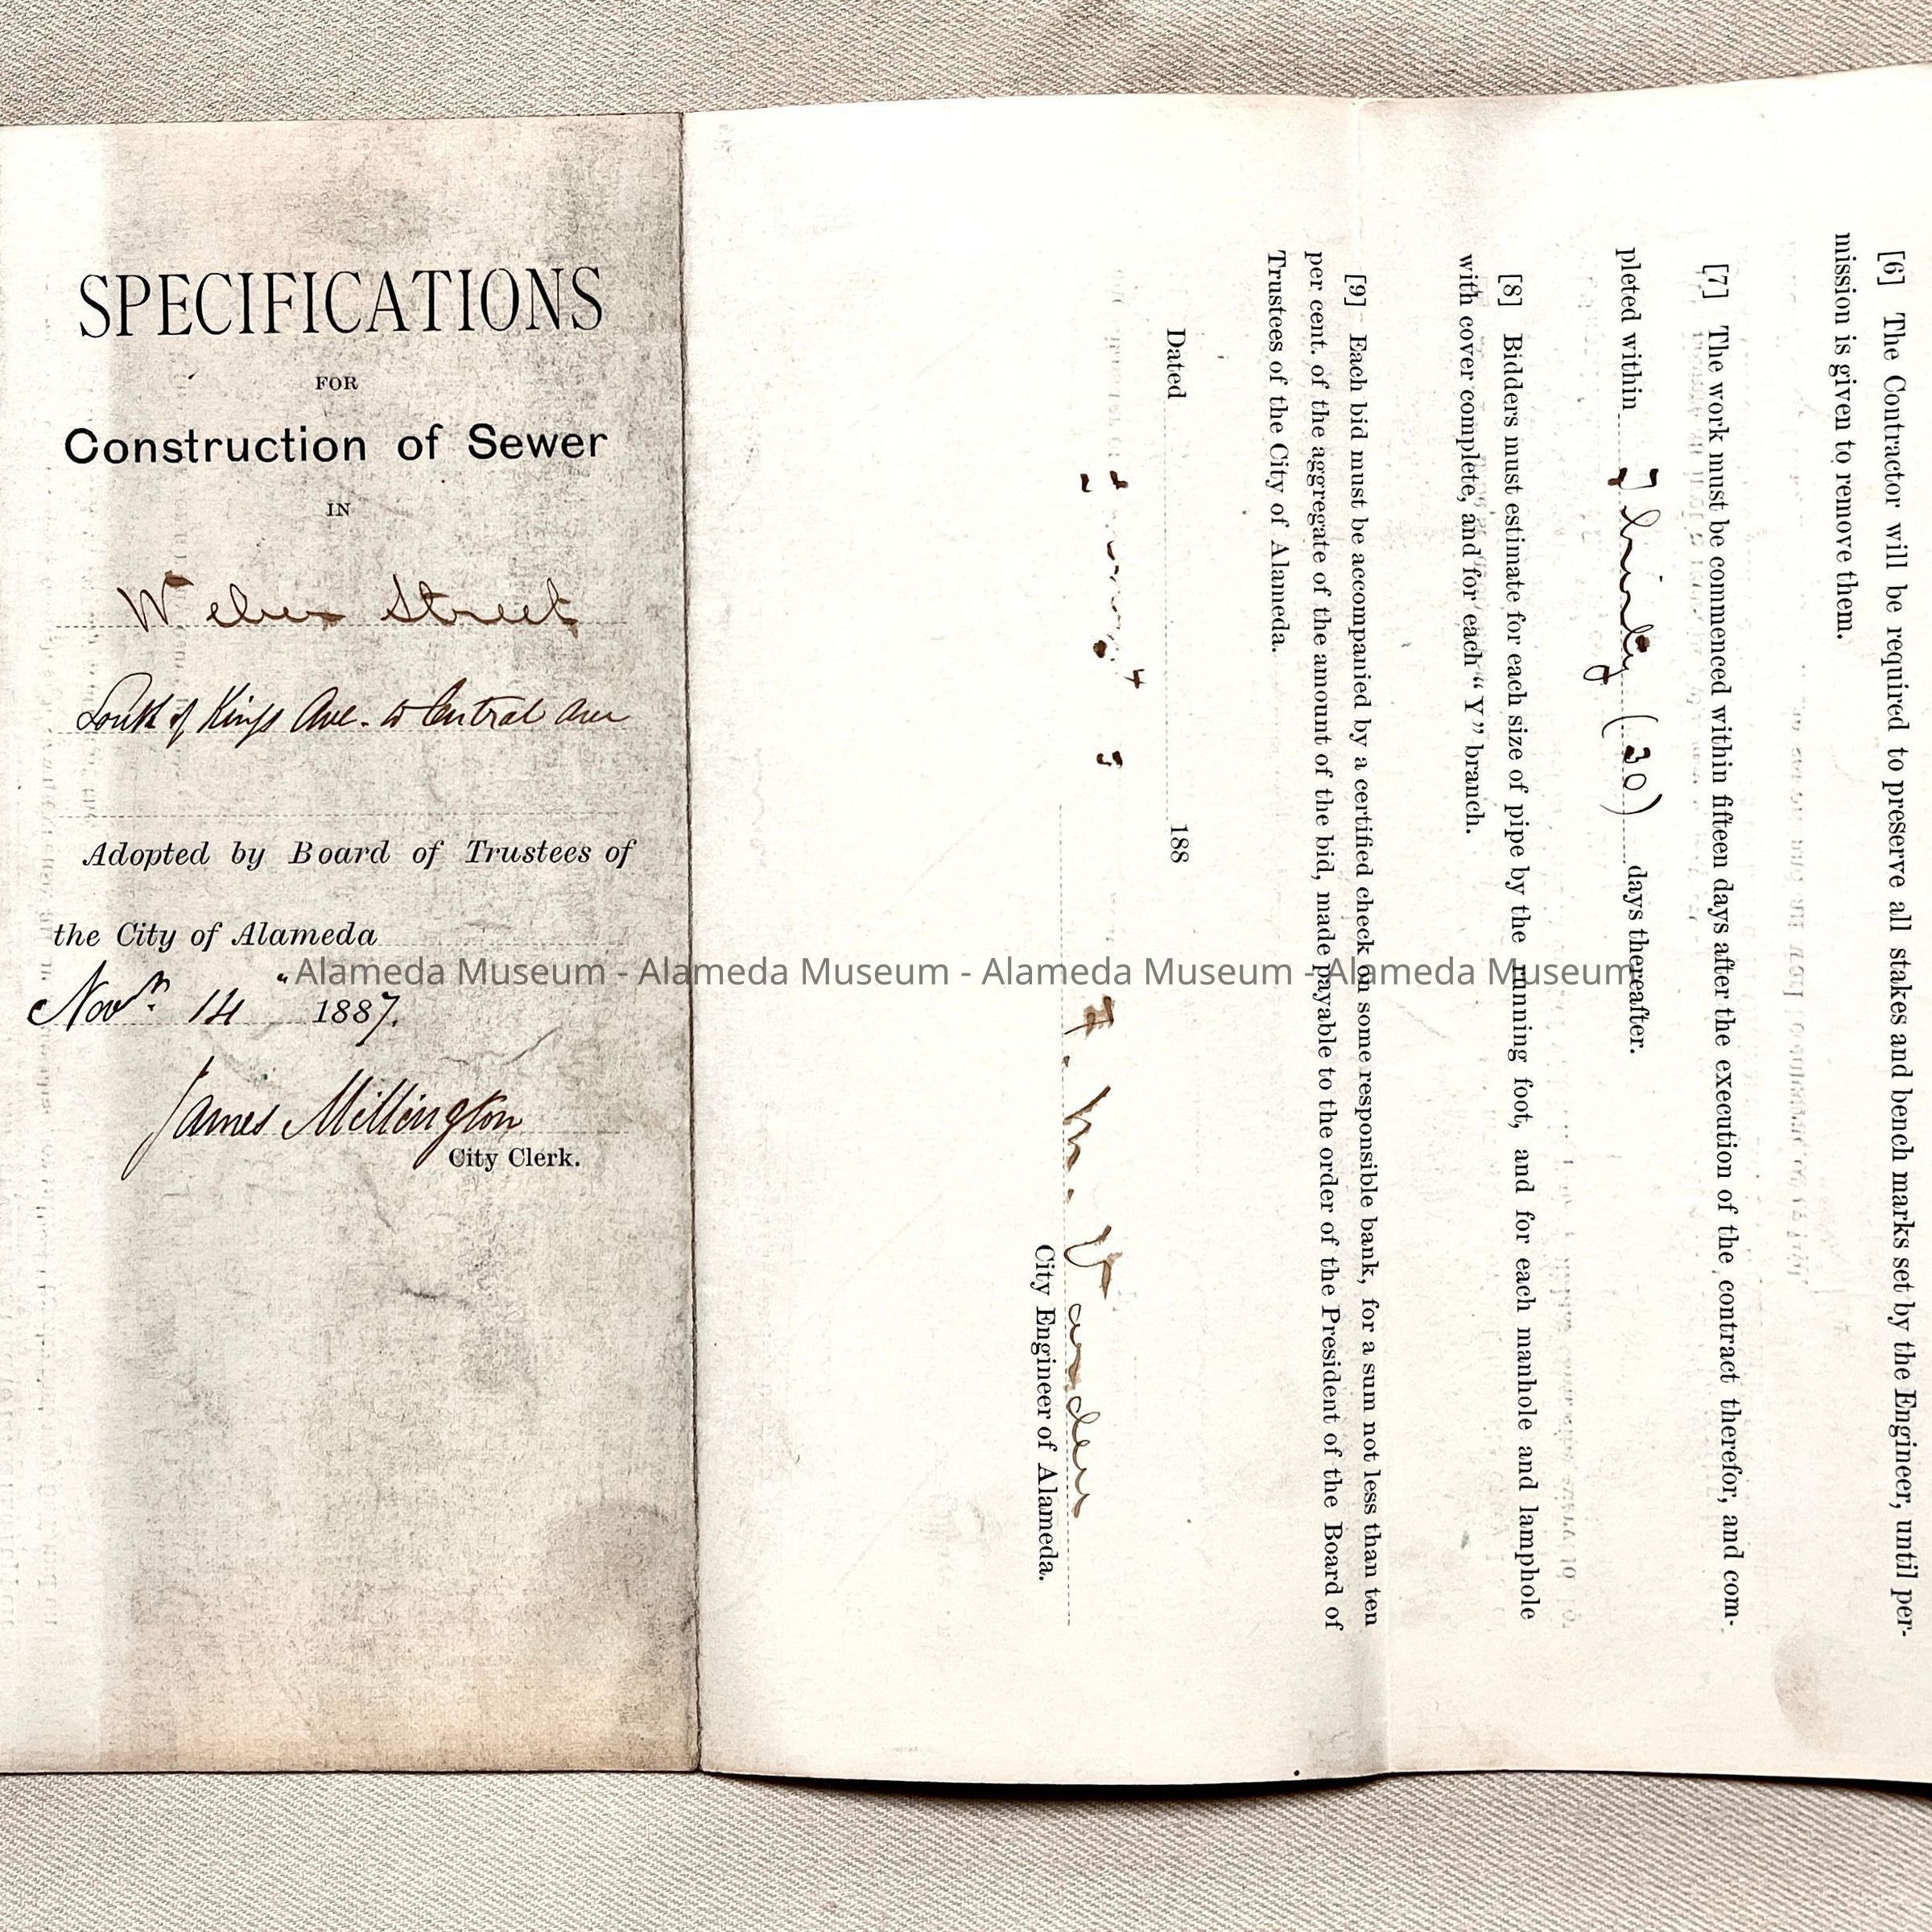 SPECIFICATIONS
FOR
Construction of Sewer
IN
Weber Street
South of Kings Ave. to Central Ave
Adopted by Board of Trustees of
the City of Alameda
Novr. 14 " 1887.
James Millington
City Clerk.
[6] The Contractor will be required to preserve all stakes and bench marks set by the Engineer, until per-
mission is given to remove them.
[7] The work must be commenced within fifteen days after the execution of the contract therefor, and com-
pleted within Thirty (30) days thereafter.
[8] Bidders must estimate for each size of pipe by the running foot, and for each manhole and lamphole
with cover complete, and for each "Y" branch.
[9] Each bid must be accompanied by a certified check on some responsible bank, for a sum not less than ten
per cent. of the aggregate of the amount of the bid, made payable to the order of the President of the Board of
Trustees of the City of Alameda.
Dated 188
City Engineer of Alameda.
Alameda Museum - Alameda Museum - Alameda Museum - Alameda Museum